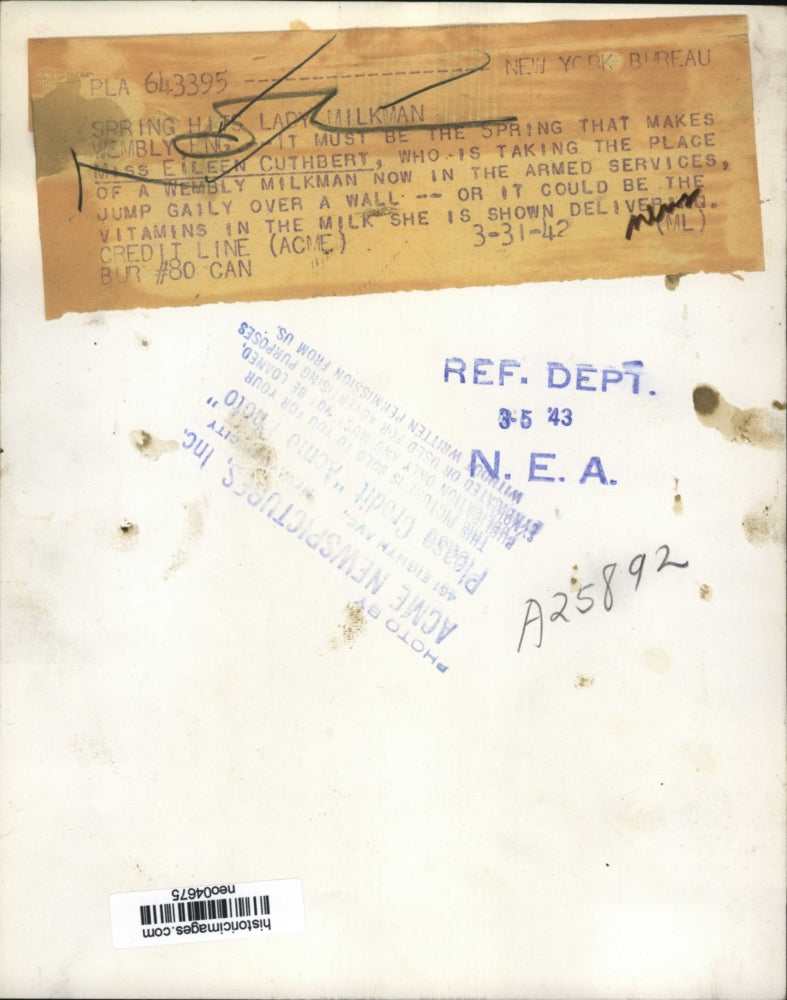 PLA 643395 ---------------- NEW YORK BUREAU
SPRING HITS LADY MILKMAN
WEMBLY, ENG.--IT MUST BE THE SPRING THAT MAKES
MISS EILEEN CUTHBERT, WHO IS TAKING THE PLACE
OF A WEMBLY MILKMAN NOW IN THE ARMED SERVICES,
JUMP GAILY OVER A WALL -- OR IT COULD BE THE
VITAMINS IN THE MILK SHE IS SHOWN DELIVERING.
CREDIT LINE (ACME) 3-31-42 (ML)
BUR #80 CAN
REF. DEPT.
3-5 '43
N. E. A.
A25892
PHOTO BY
ACME NEWSPICTURES, Inc.
461 EIGHTH AVE., NEW YORK CITY
Please Credit "Acme Photo"
THIS PICTURE IS SOLD TO YOU FOR YOUR
PUBLICATION ONLY AND MUST NOT BE LOANED,
SYNDICATED OR USED FOR ADVERTISING PURPOSES
WITHOUT WRITTEN PERMISSION FROM US.
historicimages.com
neo04675